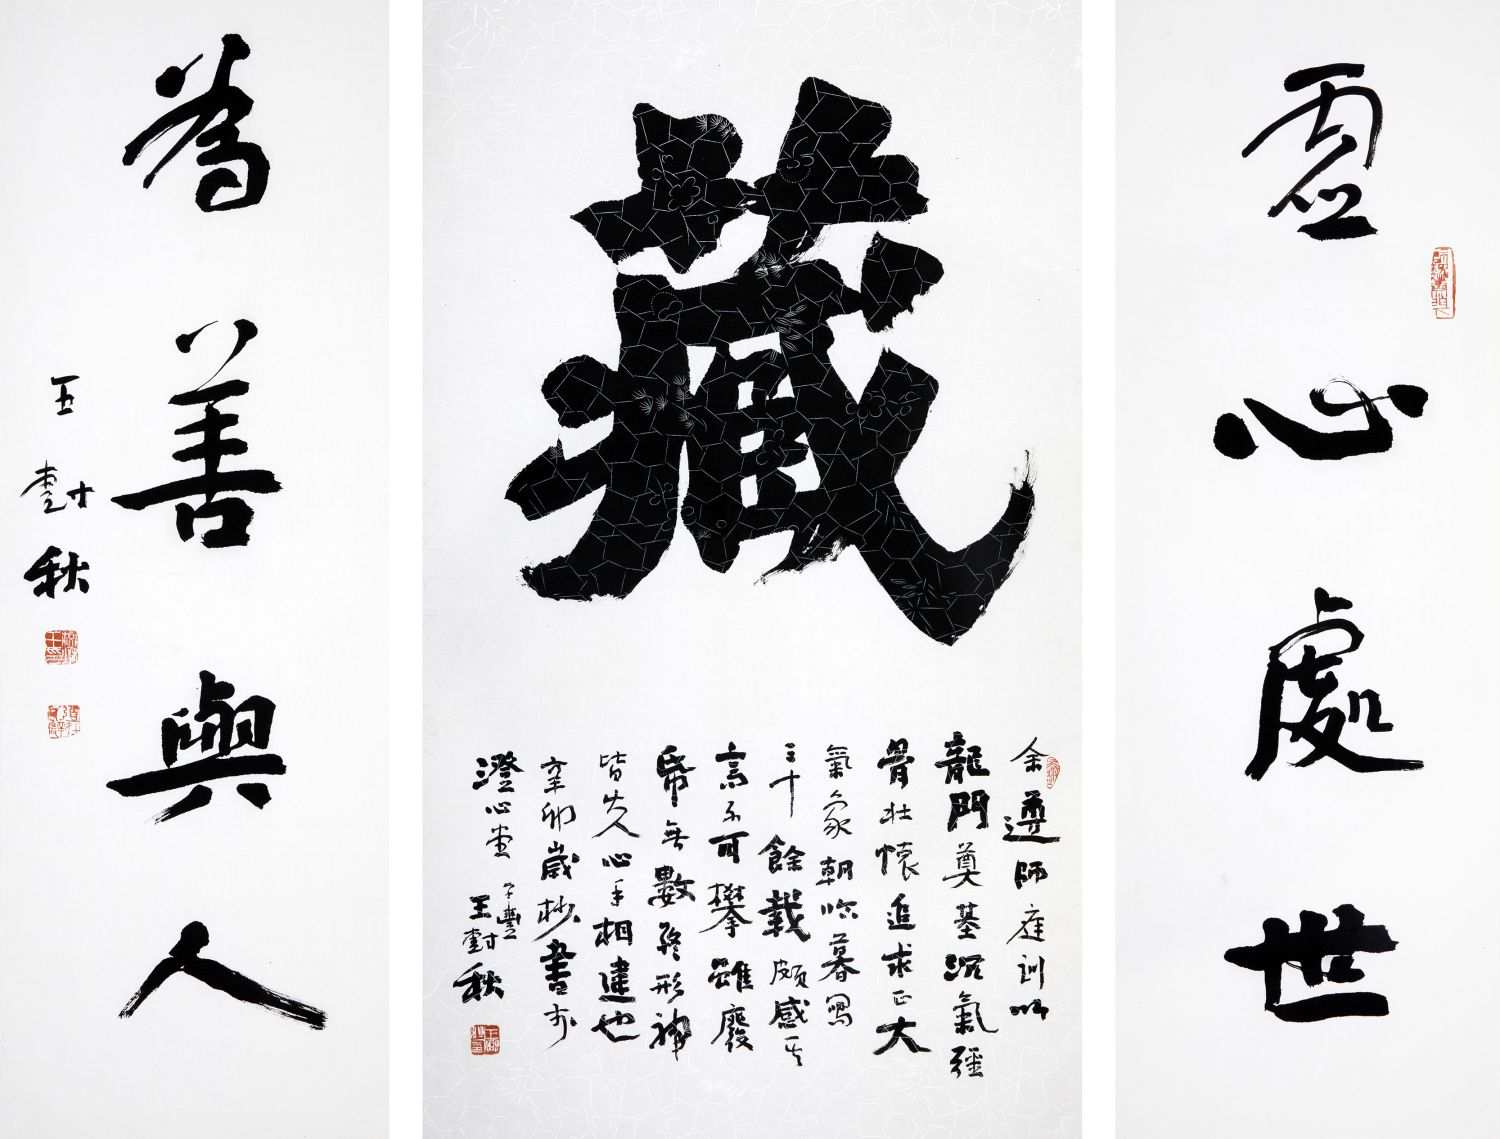 虛心處世
藏
余遵師庭訓
龍門奠基沉氣
骨壯懷追求正大
氣象朝臨暮寫
三十餘載頗感其
高不可攀雖廢
帋無數終形神
皆失心手相違也
辛卯歲杪書於
澄心堂 子豐
王樹秋
為善與人
王樹秋